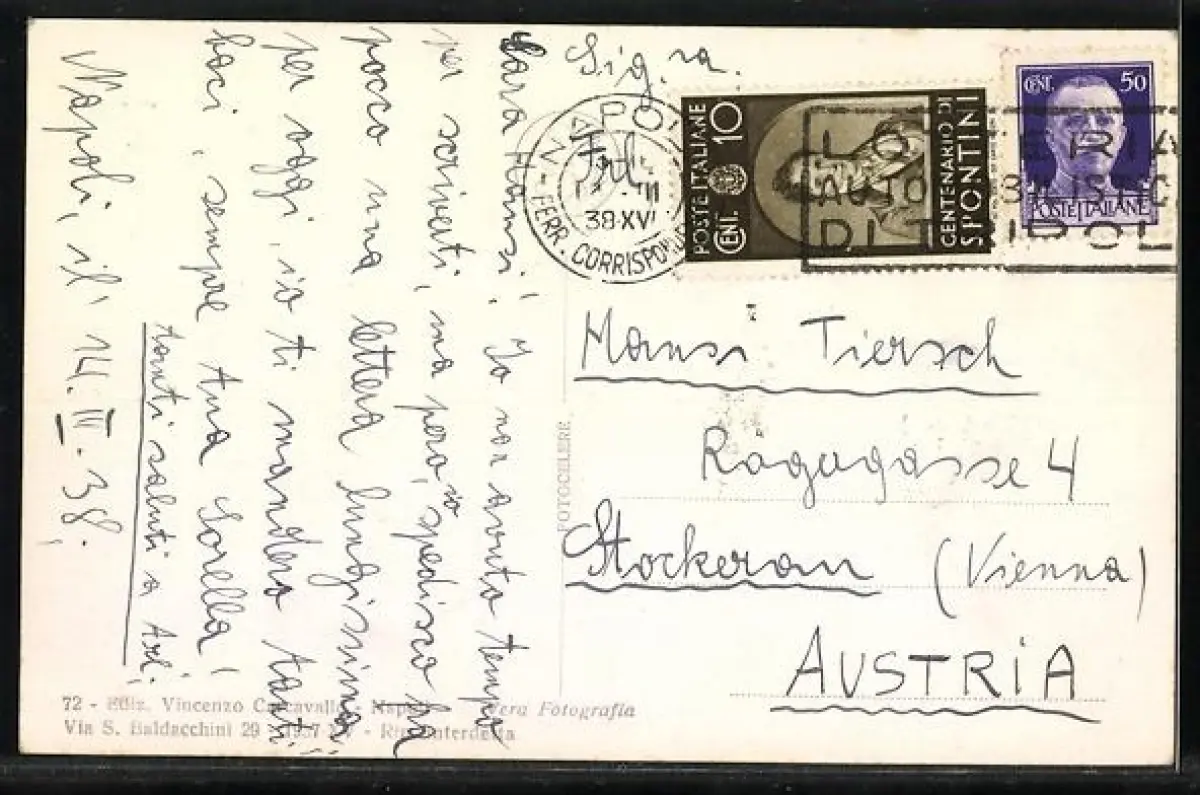 Cara Hansi! Io non avuto tempo
per scrivati, ma però, io spedisco
pocco una lettera lungissima!
per oggi, io ti mandero tanti
baci, sempre tua Sorella!
tanti saluti a Arl.
Napoli, il 14.III.38.
Sig.ra.
Arl.
Hansi Tiersch
Rögagasse 4
Stockerau (Vienna)
AUSTRIA
FERR. CORRISPON
38·XVI
POSTE ITALIANE
CENT. 10
CENTENARIO DI
SPONTINI
CENT. 50
POSTE ITALIANE
LOTTERIA
AUTOMOBILISTIC
DI TRIPOLI
FOTOCELERE
72 - Ediz. Vincenzo Carcavallo - Napoli - Vera Fotografia
Via S. Baldacchini 29 - 1937 XV - Rip. interdetta